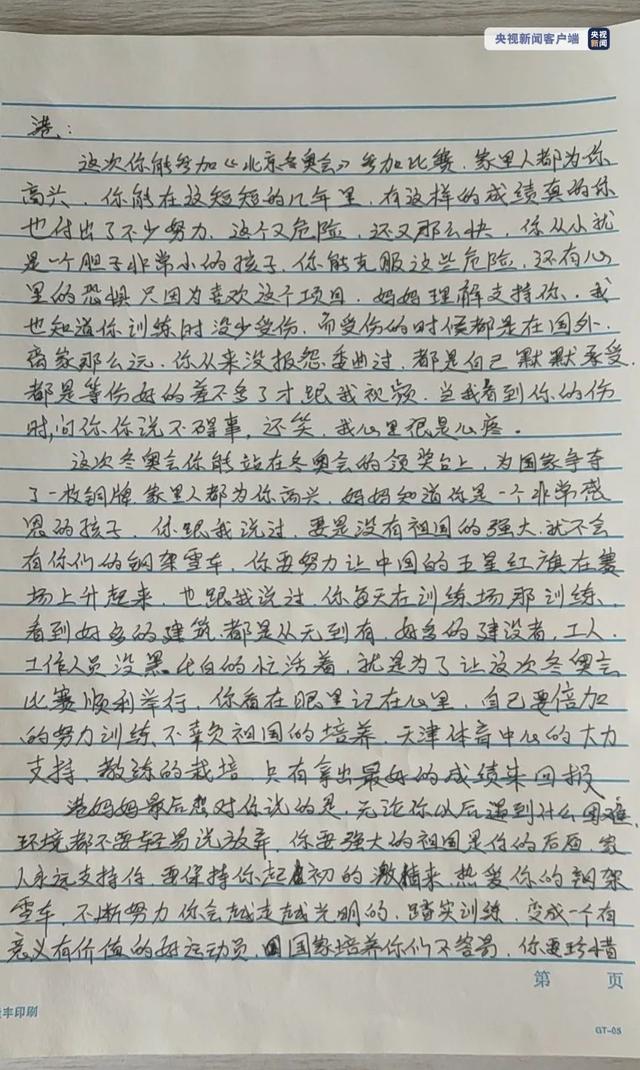 央视新闻客户端
央视
新闻
港：
这次你能参加《北京冬奥会》参加比赛，家里人都为你
高兴，你能在这短短的几年里，有这样的成绩真的你
也付出了不少努力，这个又危险，还又那么快，你从小就
是一个胆子非常小的孩子，你能克服这些危险，还有心
里的恐惧只因为喜欢这个项目，妈妈理解支持你，我
也知道你训练时没少受伤，而受伤的时候都是在国外，
离家那么远，你从来没报怨委曲过，都是自己默默承受，
都是等伤好的差不多了才跟我视频，当我看到你的伤
时，问你你说不碍事，还笑，我心里很是心疼。
这次冬奥会你能站在冬奥会的领奖台上，为国家争夺
了一枚铜牌，家里人都为你高兴，妈妈知道你是一个非常感
恩的孩子，你跟我说过，要是没有祖国的强大，就不会
有你们的钢架雪车，你要努力让中国的五星红旗在赛
场上升起来，也跟我说过，你每天在训练场那训练，
看到好多的建筑，都是从无到有，好多的建设者，工人，
工作人员没黑没白的忙活着，就是为了让这次冬奥会
比赛顺利举行，你看在眼里记在心里，自己要倍加
的努力训练，不辜负祖国的培养，天津体育中心的大力
支持，教练的栽培，只有拿出最好的成绩来回报
港妈妈最后想对你说的是，无论你以后遇到什么困难，
环境都不要轻易说放弃，你要强大的祖国是你的后盾，家
人永远支持你，要保持你起初的激情来，热爱你的钢架
雪车，不断努力你会越走越光明的，踏实训练，变成一个有
意义有价值的好运动员，国家培养你们不容易，你要珍惜
第 页
丰印刷
GT-05